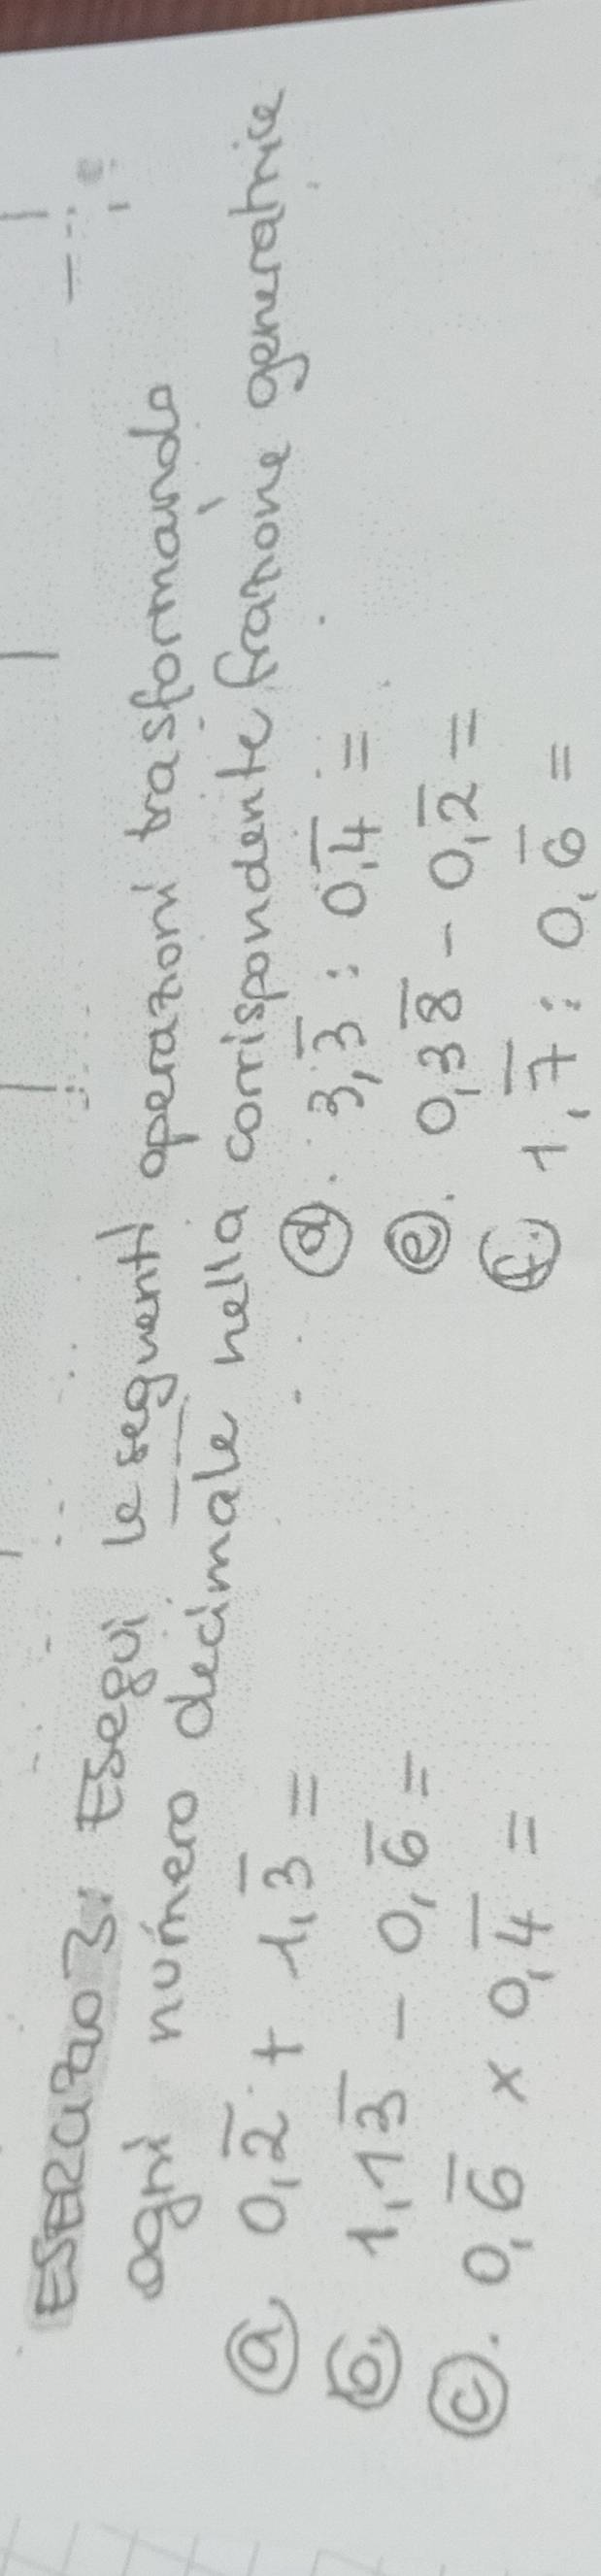 ESERCIZIO 3: Esegui le seguenti operazioni trasformando
ogni numero decimale nella corrispondente frazione generatrice
a. 0,2̅ + 1,3̅ =
b. 1,13̅ - 0,6̅ =
c. 0,6̅ x 0,4̅ =
d. 3,3̅ : 0,4̅ =
e. 0,38̅ - 0,2̅ =
f. 1,7̅ : 0,6̅ =